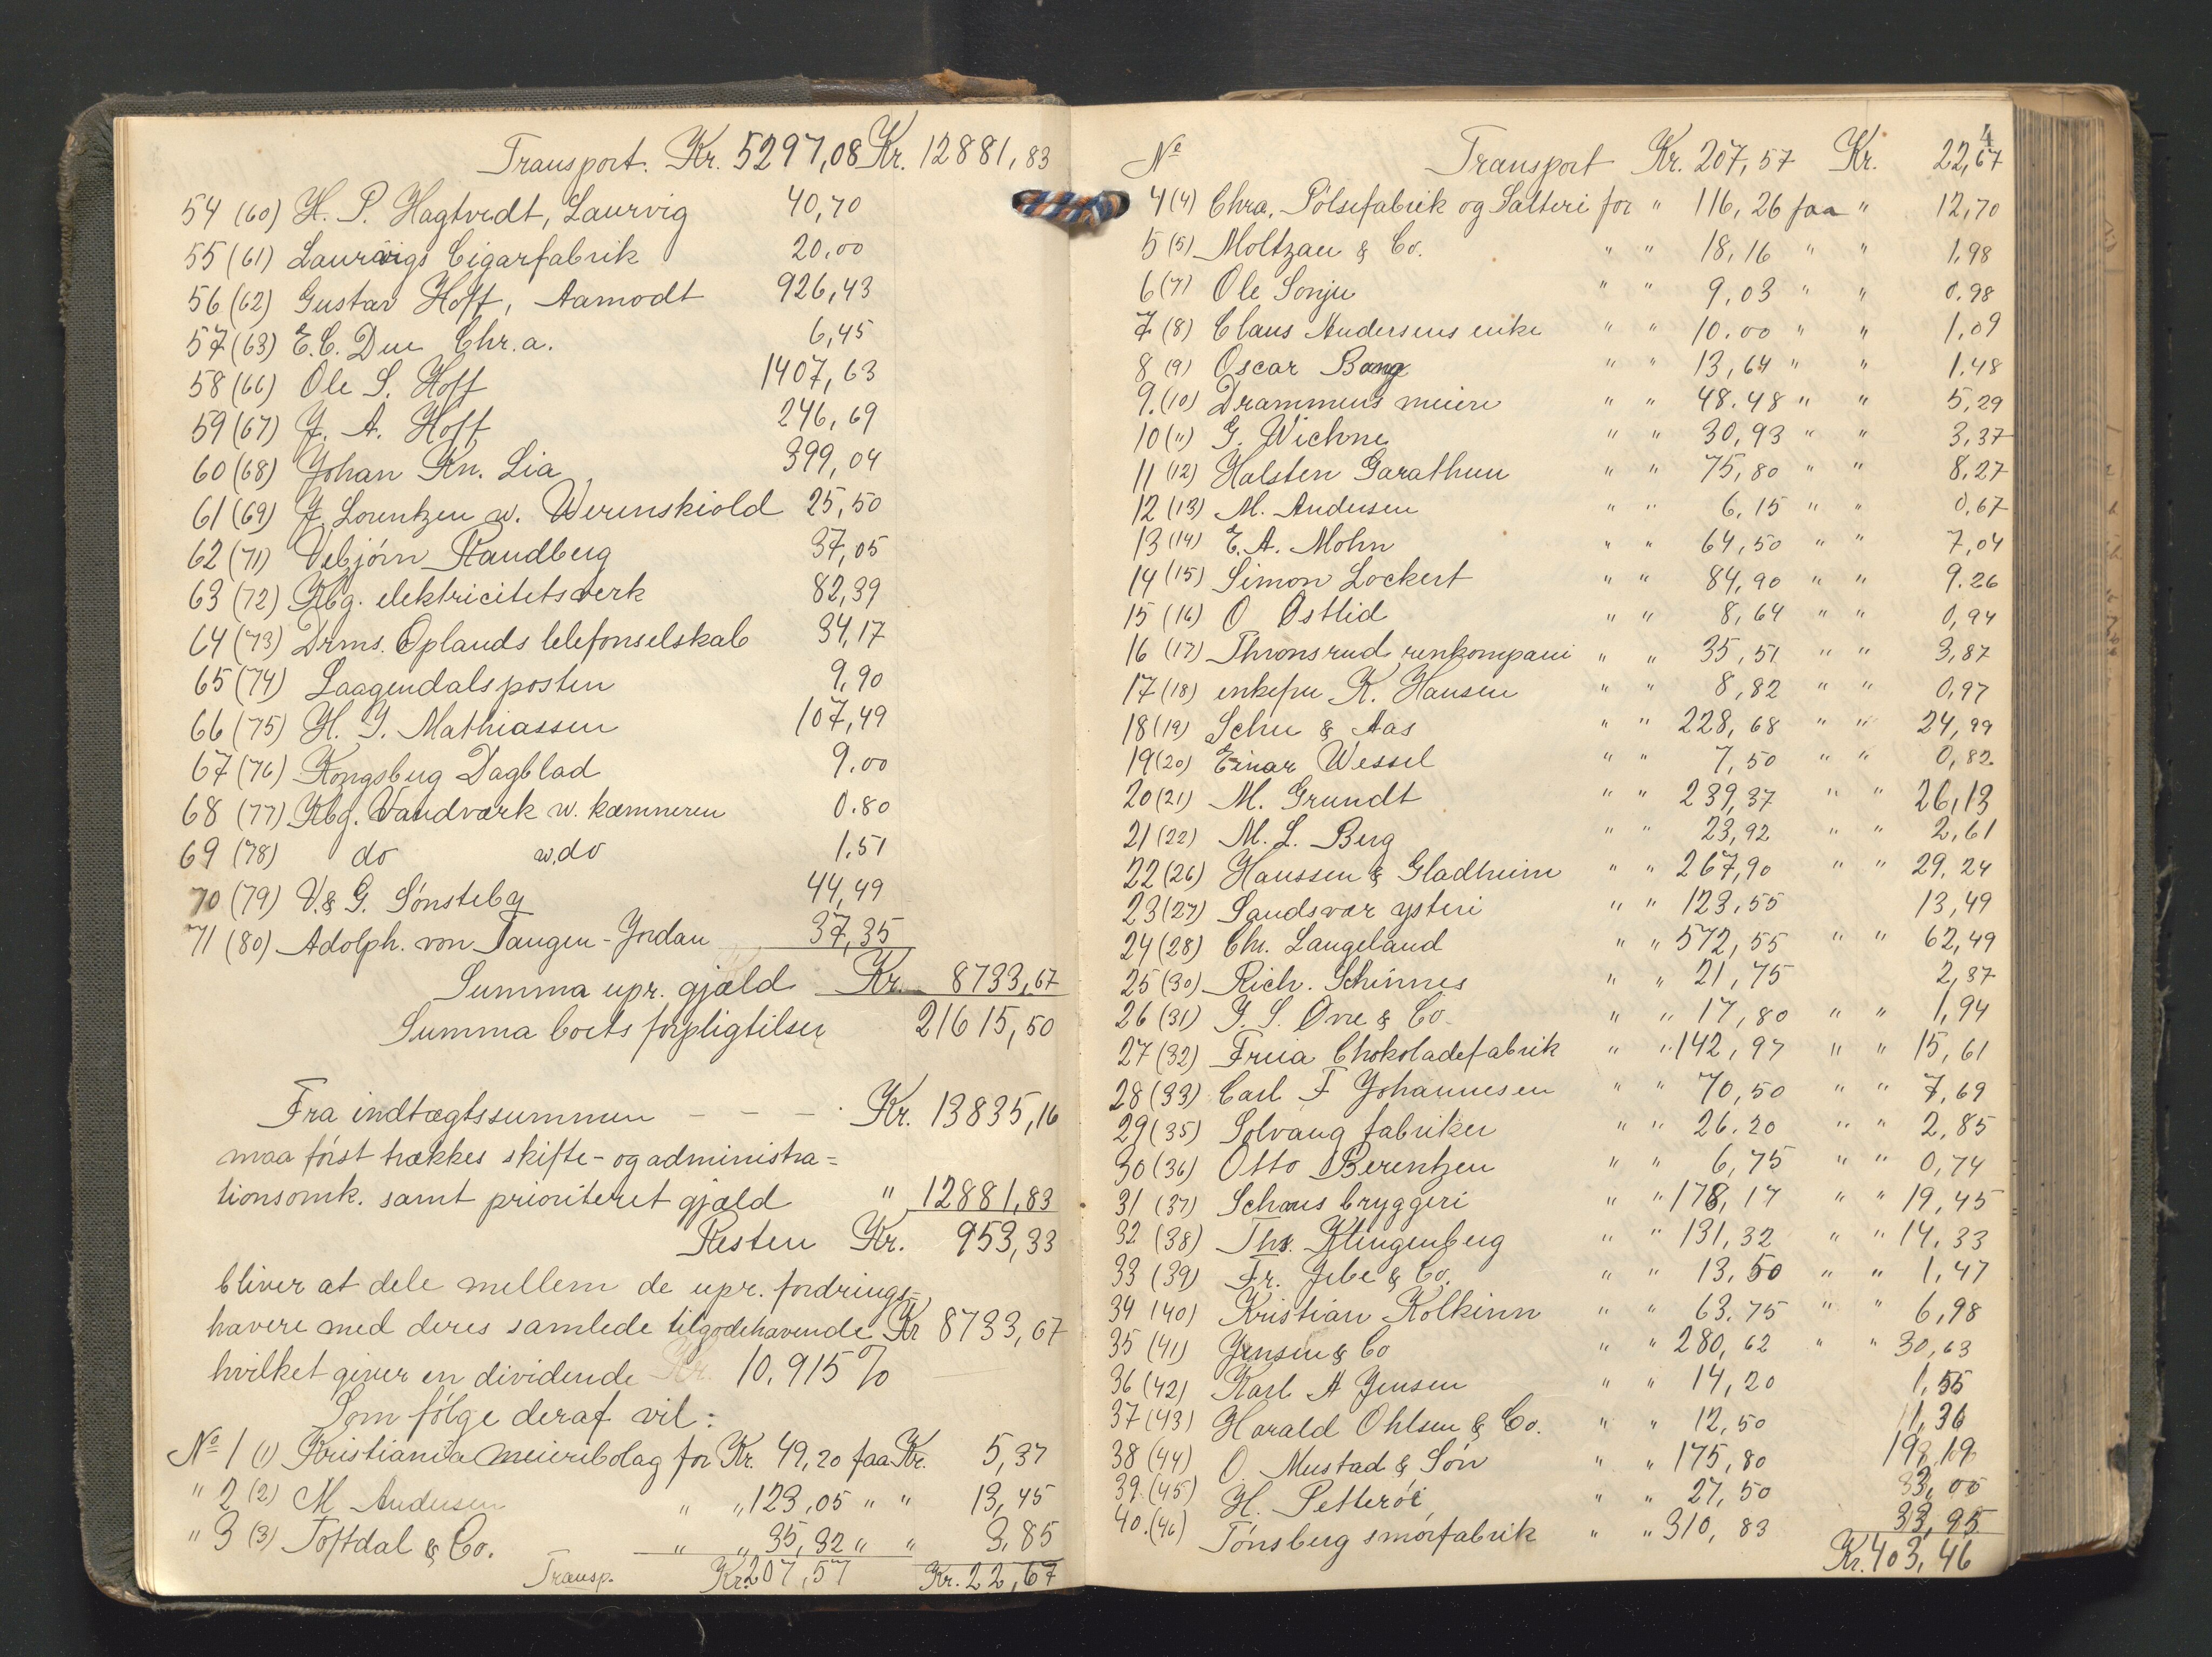 Transport. Kr. 5297,08 Kr. 12881,83
54 (60) H. P. Hagtvedt, Laurvig 40,70
55 (61) Laurvigs Cigarfabrik 20,00
56 (62) Gustav Hoff, Aamodt 926,43
57 (63) E. C. Due Chr.a. 6,45
58 (66) Ole S. Hoff 1407,63
59 (67) J. A. Hoff 246,69
60 (68) Johan Kn. Lia 399,04
61 (69) J. Lorentzen w. Werenskiold 25,50
62 (71) Vebjörn Randberg 37,05
63 (72) Kbg. elektricitetsverk 82,39
64 (73) Drms. Oplands telefonselskab 34,17
65 (74) Laagendalsposten 9,90
66 (75) H. J. Mathiassen 107,49
67 (76) Kongsberg Dagblad 9.00
68 (77) Kbg. Vandværk w. kæmneren 0.80
69 (78) do w. do 1.51
70 (79) V. & G. Sönsteby 44,49
71 (80) Adolph. von Tangen-Jordan 37,35
Summa upr. gjæld Kr. 8733,67
Summa boets forpligtilser 21615,50
Fra indtægtssummen - - - . Kr. 13835,16
maa först trækkes skifte- og administra=
tionsomk. samt prioriteret gjæld " 12881,83
Resten Kr. 953,33
bliver at dele mellem de upr. fordrings-
havere med deres samlede tilgodehavende Kr 8733,67
hvilket giver en dividende 10,915 %
Som fölge deraf vil:
No 1 (1) Kristiania meieribolag for Kr. 49,20 faa Kr. 5,37
" 2 (2) M Andersen " " 123,05 " " 13,45
" 3 (3) Toftdal & Co. " " 35,32 " " 3,85
Transp. Kr. 207,57 Kr. 22,67
4
No Transport Kr. 207,57 Kr. 22,67
4 (4) Chra. Pölsefabrik og Salteri for " 116,26 faa " 12,70
5 (5) Moltzau & Co. " " 18,16 " " 1,98
6 (7) Ole Sonju " " 9,03 " " 0.98
7 (8) Claus Andersens enke " " 10.00 " " 1,09
8 (9) Oscar Bang " " 13,64 " " 1.48
9. (10) Drammens meieri " " 48.48 " " 5,29
10 (11) G. Wichne " " 30,93 " " 3,37
11 (12) Halsten Garathun " " 75,80 " " 8,27
12 (13) M. Andersen " " 6,15 " " 0,67
13 (14) E. A. Mohn " " 64,50 " " 7,04
14 (15) Simon Lockert " " 84,90 " " 9.26
15 (16) O Østlid " " 8,64 " " 0,94
16 (17) Thronsrud renkompani " " 35,51 " " 3,87
17 (18) enkefru K. Hansen " " 8,82 " " 0,97
18 (19) Schee & Aas " " 228,68 " " 24,99
19 (20) Einar Wessel " " 7,50 " " 0,82
20 (21) M. Grundt " " 239,37 " " 26,13
21 (22) M. L. Berg " " 23,92 " " 2,61
22 (26) Hanssen & Gladheim " " 267,90 " " 29,24
23 (27) Sandsvær ysteri " " 123,55 13,49
24 (28) Chr. Langeland " " 572,55 " " 62,49
25 (30) Rich. Schinnes " " 21,75 2,37
26 (31) J. S. Øvre & Co. " " 17,80 " " 1,94
27 (32) Freia Chokoladefabrik " " 142,97 " " 15,61
28 (33) Carl F Johannesen " " 70,50 " " 7,69
29 (35) Solvang fabriker " " 26.20 " " 2,85
30 (36) Otto Berentzen " " 6,75 " " 0,74
31 (37) Schous bryggeri " " 178,17 " " 19,45
32 (38) Ths. Klingenberg " " 131,32 " " 14,33
33 (39) Fr. Jebe & Co. " " 13,50 " " 1,47
34 (40) Kristian Kolkinn " " 63.75 " " 6,98
35 (41) Jensen & Co " " 280,62 " " 30,63
36 (42) Karl A Jensen " " 14,20 1,55
37 (43) Harald Ohlsen & Co. " " 12,50 1,36
38 (44) O. Mustad & Sön " " 175,80 19,19
39. (45) H. Petteröe " " 27,50 3,00
40. (46) Tönsberg smörfabrik " " 310,83 33,95
Kr. 403,46